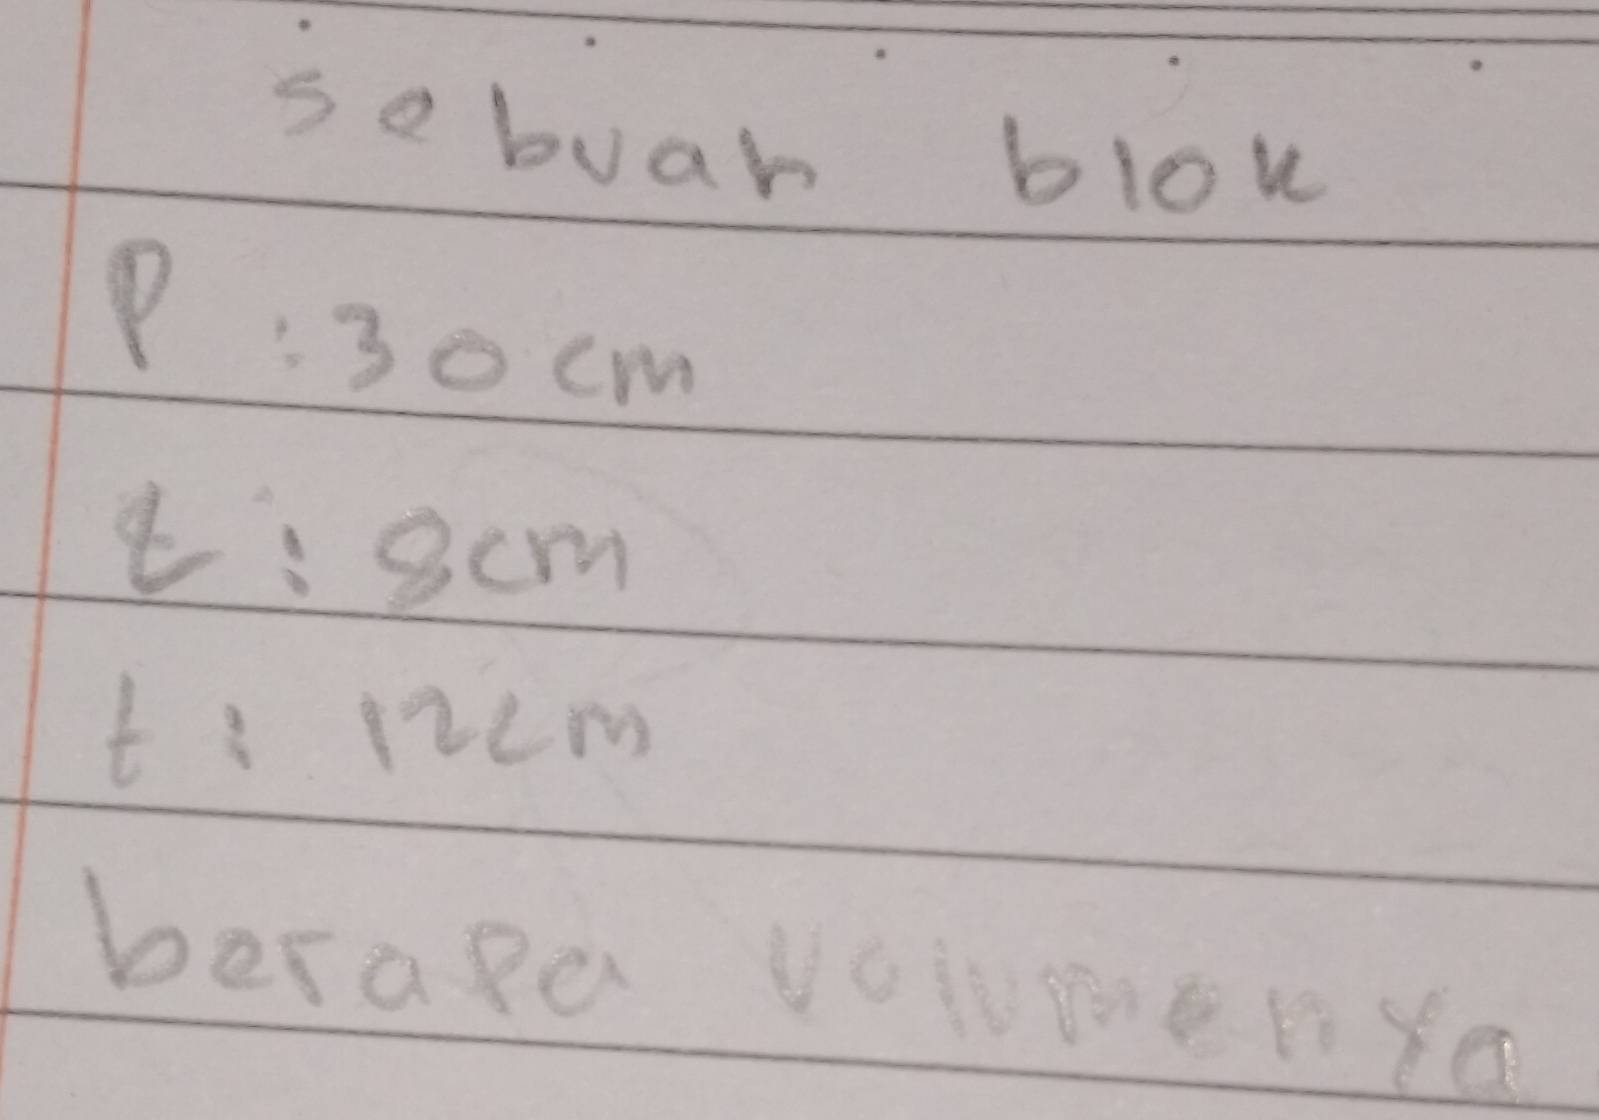 sebuah blok
P : 30 cm
l : 8cm
t : 12cm
berapa volumenya